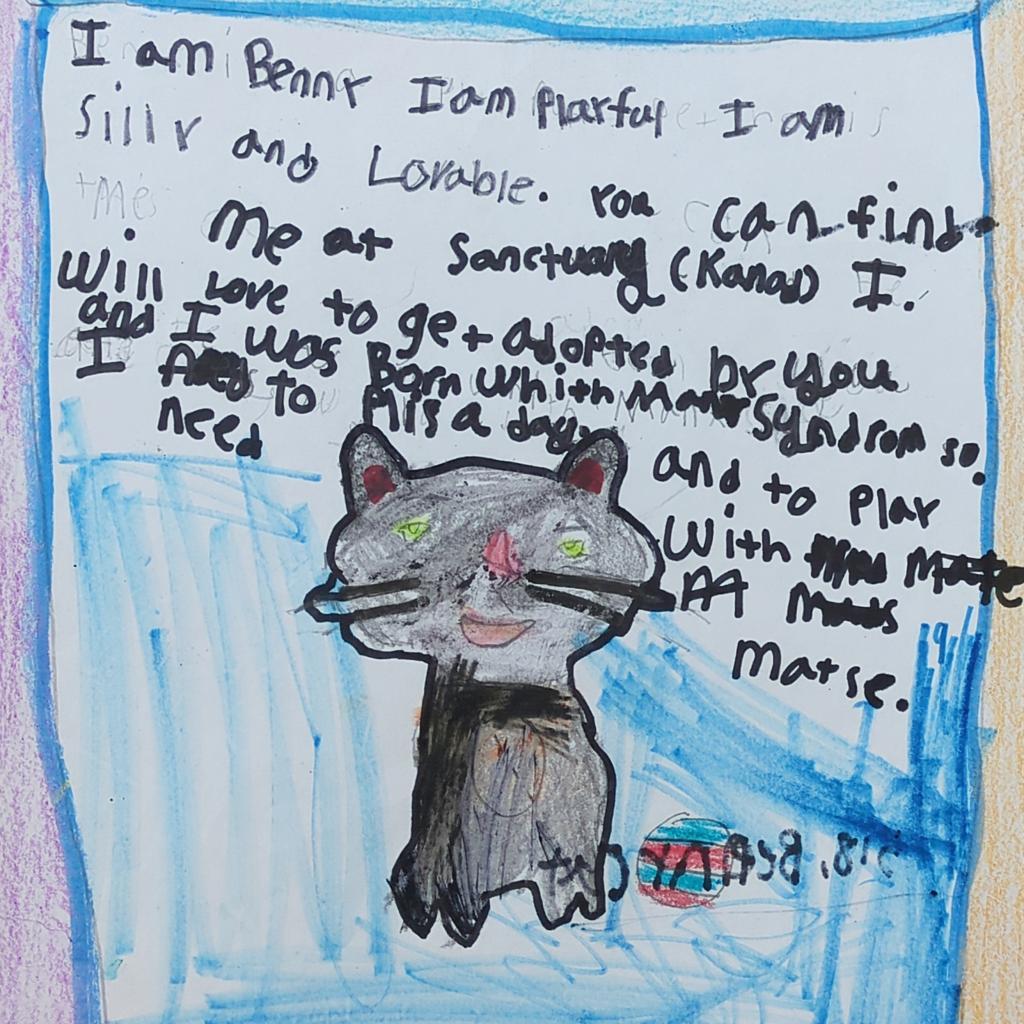 I am Bennr I am Plarful I am
Sillr and Lovable. rou can find
Me at Sanctuary (Kanab) I.
will love to get adopted br you
and I was Born Whith Manx Syndrom so.
I to Pils a day.
need
and to Plar
With
Matse.